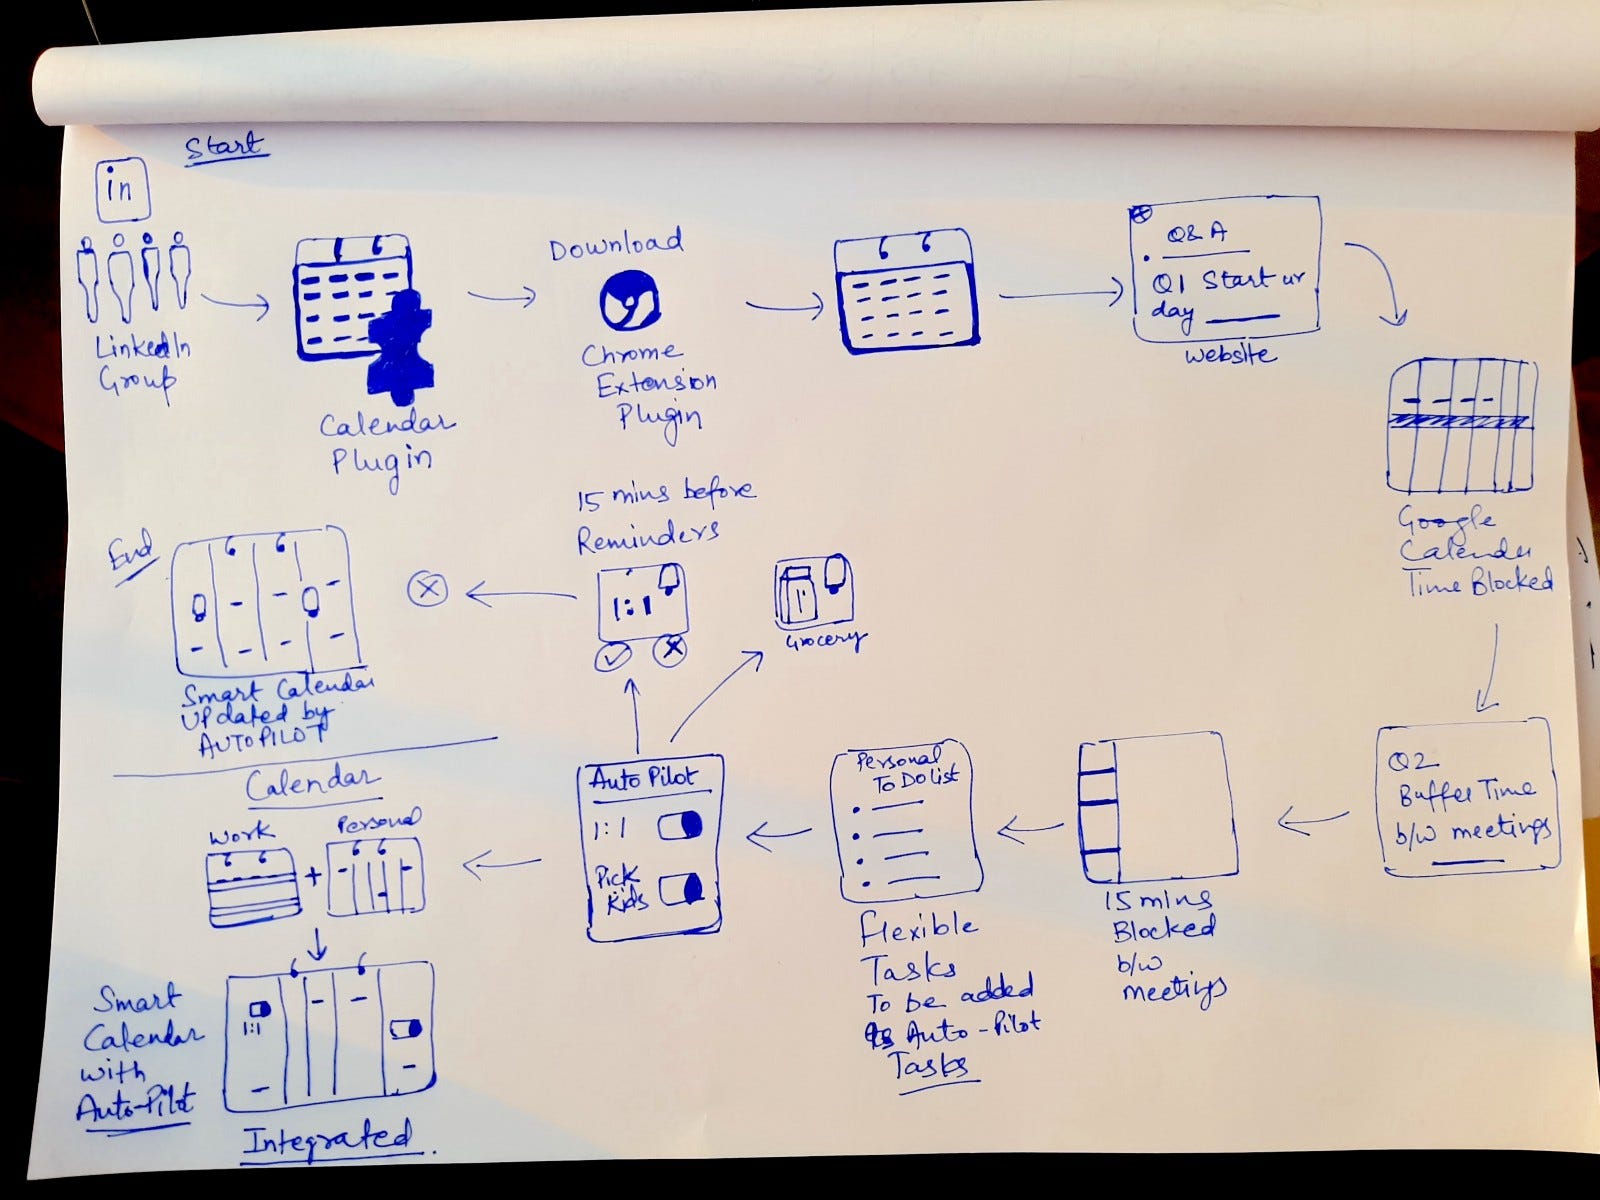 Start
in
LinkedIn
Group
Calendar
Plugin
Download
Chrome
Extension
Plugin
Q&A
Q1 Start ur
day
website
Google
Calender
Time Blocked
Q2
Buffer Time
b/w meetings
15 mins
Blocked
b/w
meetings
Personal
To Do list
Flexible
Tasks
To be added
as Auto-Pilot
Tasks
Auto Pilot
1:1
Pick
Kids
15 mins before
Reminders
1:1
Grocery
End
Smart Calendar
Updated by
AUTOPILOT
Calendar
Work
+
Personal
1:1
Smart
Calendar
with
Auto-Pilot
Integrated.